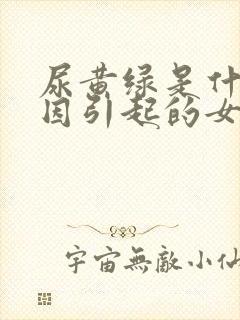 尿黄绿是什
因引起的女
宇宙無敵小仙